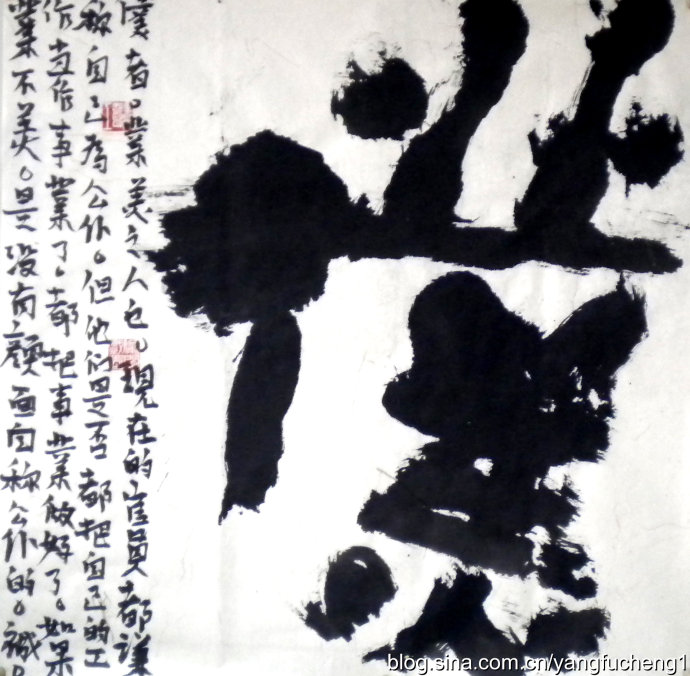 僕
者。業美之人也。現在的官員都謙
称自己為公仆。但他们是否都把自己的工
作当作事業了。都把事業做好了。如果
業不美。是没有顔面自称公仆的。
blog.sina.com.cn/yangfucheng1